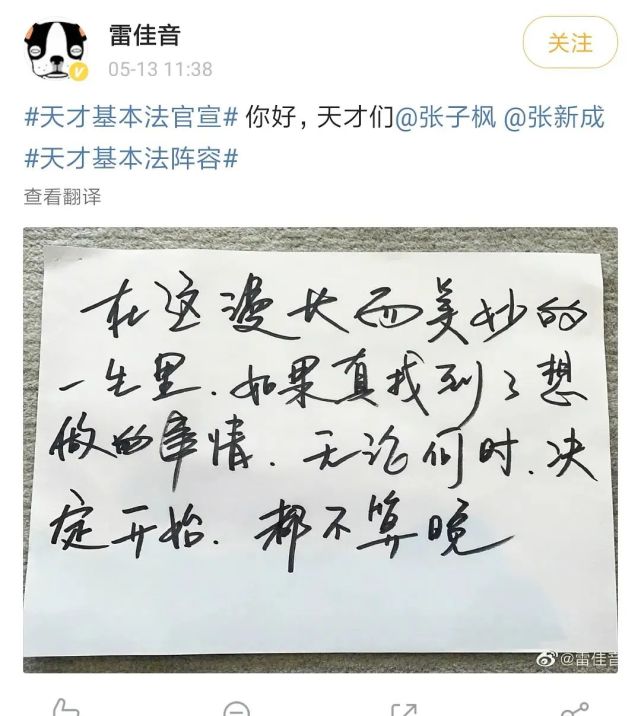 雷佳音
05-13 11:38
关注
#天才基本法官宣# 你好，天才们@张子枫 @张新成
#天才基本法阵容#
查看翻译
在这漫长而美妙的
一生里.如果真找到了想
做的事情.无论何时.决
定开始.都不算晚
@雷佳音